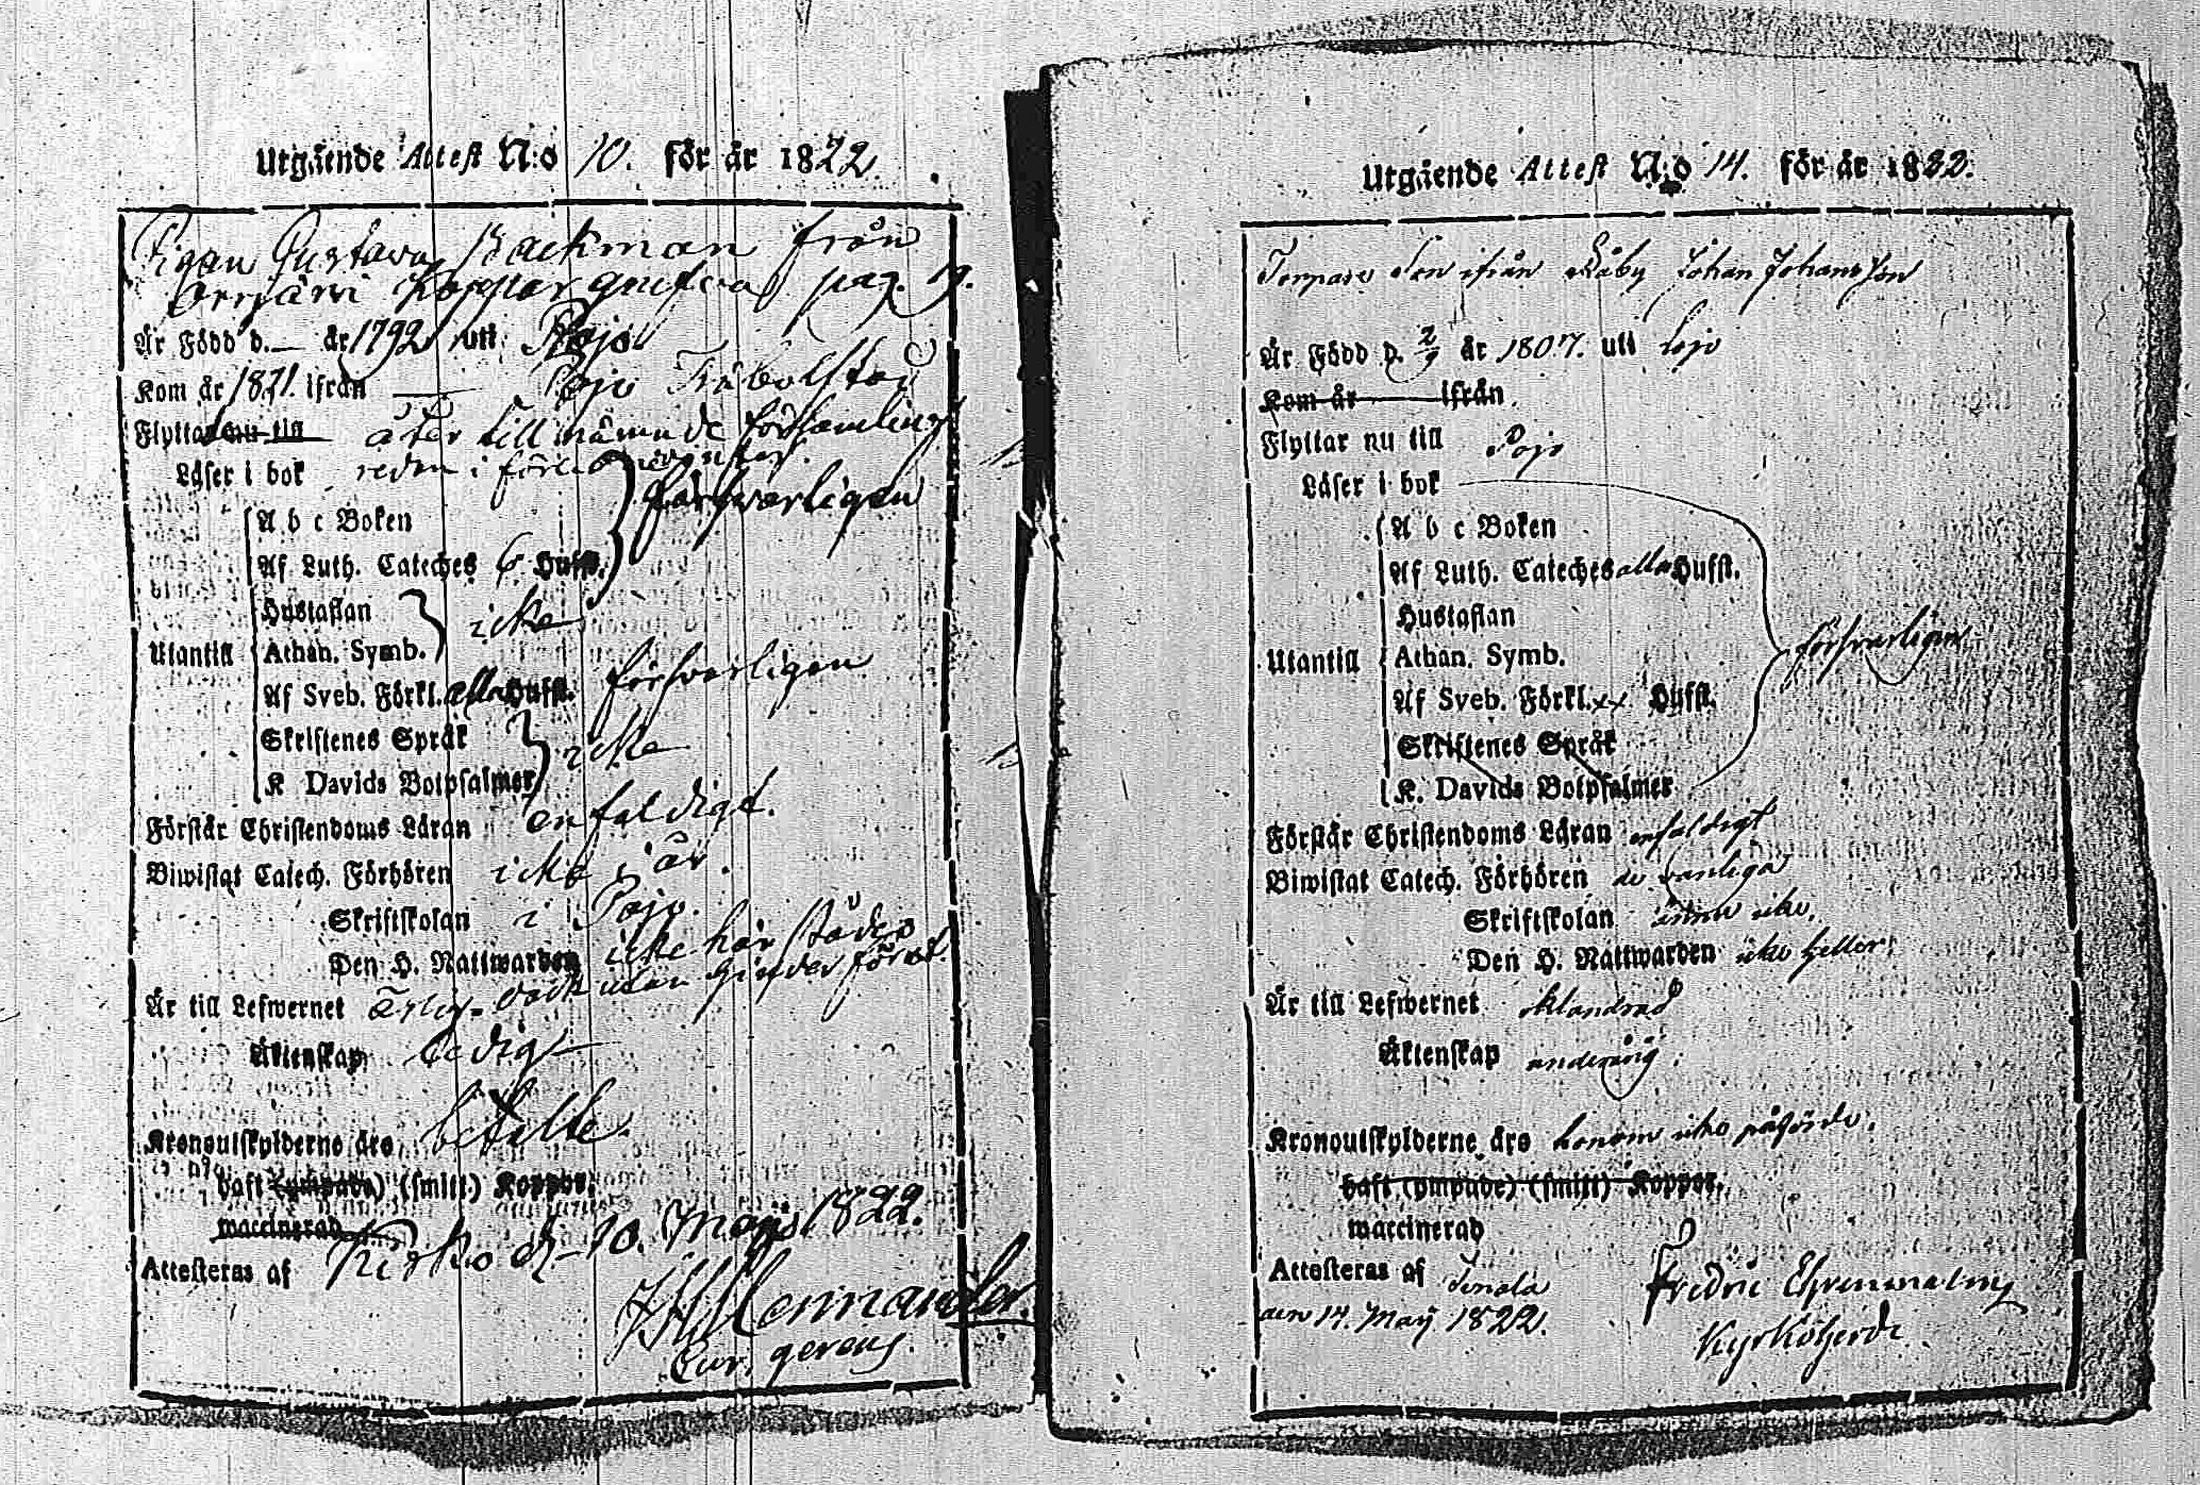 Utgående Attest N:o 10. för år 1822.
Pigan Gustava Backman från
Orrjärvi Koppargrufva pag. 19.
Är Född d. — år 1792 uti Pojo
Kom år 1821. ifrån — Pojo
Flyttar nu till åter till nämnde församling
Läser i bok redan i förledne
A b c Boken försvarligen
Af Luth. Cateches 6 Hufst.
Hustaflan icke
Utantill Athan. Symb.
Af Sveb. Förkl. alla Hufst. försvarligen
Skriftenes Språk icke
K Davids Botpsalmer
Förstår Christendoms Läran enfaldigt.
Biwistat Catech. Förhören icke i år.
Skriftskolan i Pojo.
Den H. Nattwarden icke härstädes
Är till Lefwernet ärlig - dock utan hinder
Äktenskap ledig
Kronoutskylderne äro betalte.
haft (ympade) (smitt.) Koppor.
waccinerad
Attesteras af Kisko d. 10. Maji 1822.
Cur. gerens.
Utgående Attest N:o 14. för år 1822.
Torpare Son ifrån Råby Johan Johansson
Är Född d. 2/9 år 1807. uti Lojo
Kom år — ifrån
Flyttar nu till Pojo
Läser i bok
A b c Boken
Af Luth. Cateches alla Hufst.
Hustaflan
Utantill Athan. Symb. försvarligen
Af Sveb. Förkl. xx Hufst.
Skriftenes Språk
K. Davids Botpsalmer
Förstår Christendoms Läran enfaldigt
Biwistat Catech. Förhören de vanliga
Skriftskolan ännu icke.
Den H. Nattwarden icke heller.
Är till Lefwernet oklandrad
Äktenskap underårig.
Kronoutskylderne äro honom icke påförde.
haft (ympade) (smitt) Koppor.
waccinerad
Attesteras af Tenala Fredric Ehrenmalm
den 14. Maij 1822. Kyrkoherde